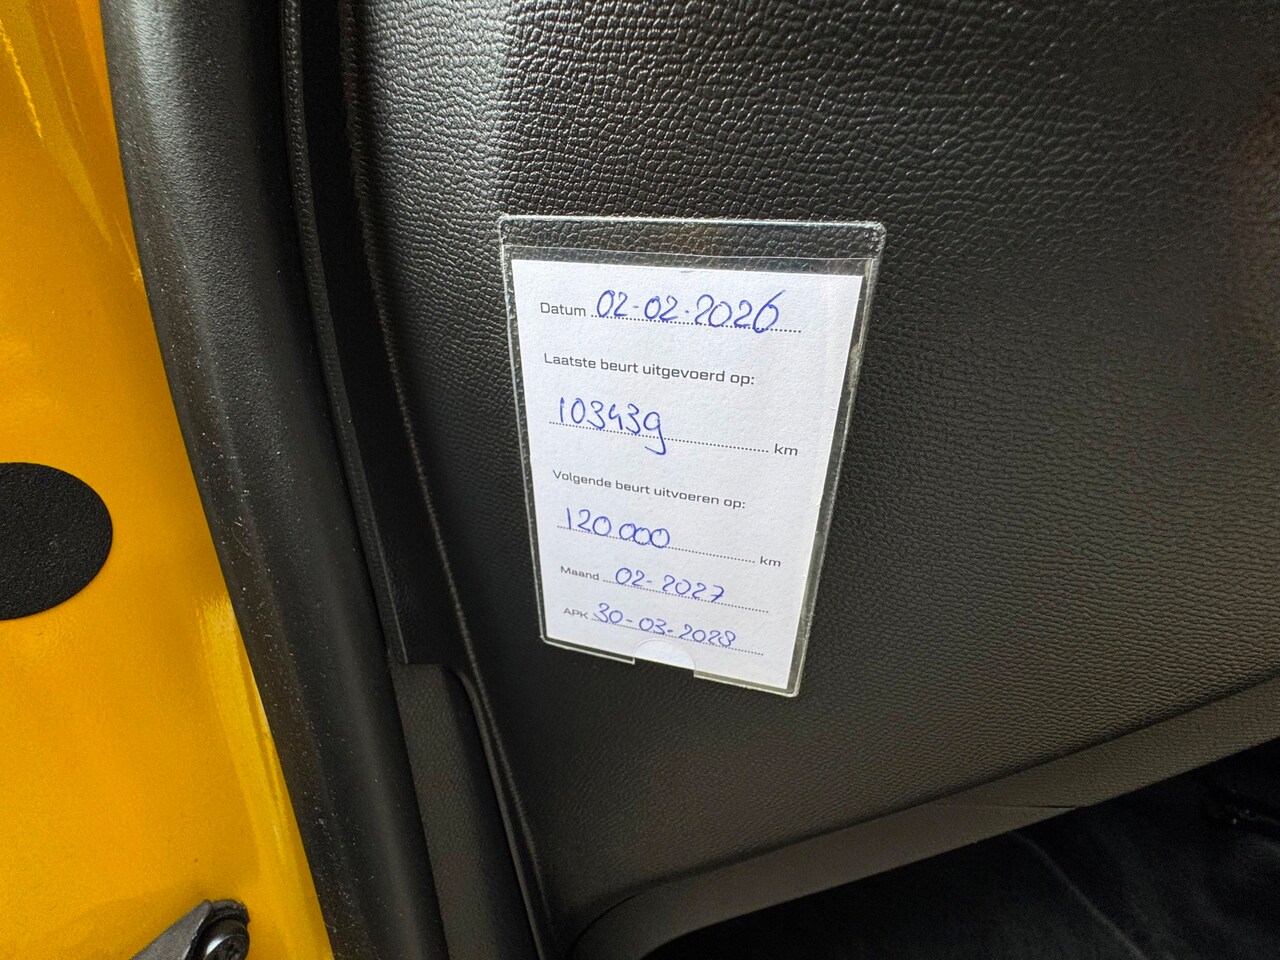 Datum 02-02-2026
Laatste beurt uitgevoerd op:
103439 km
Volgende beurt uitvoeren op:
120.000 km
Maand 02-2027
APK 30-03-2028